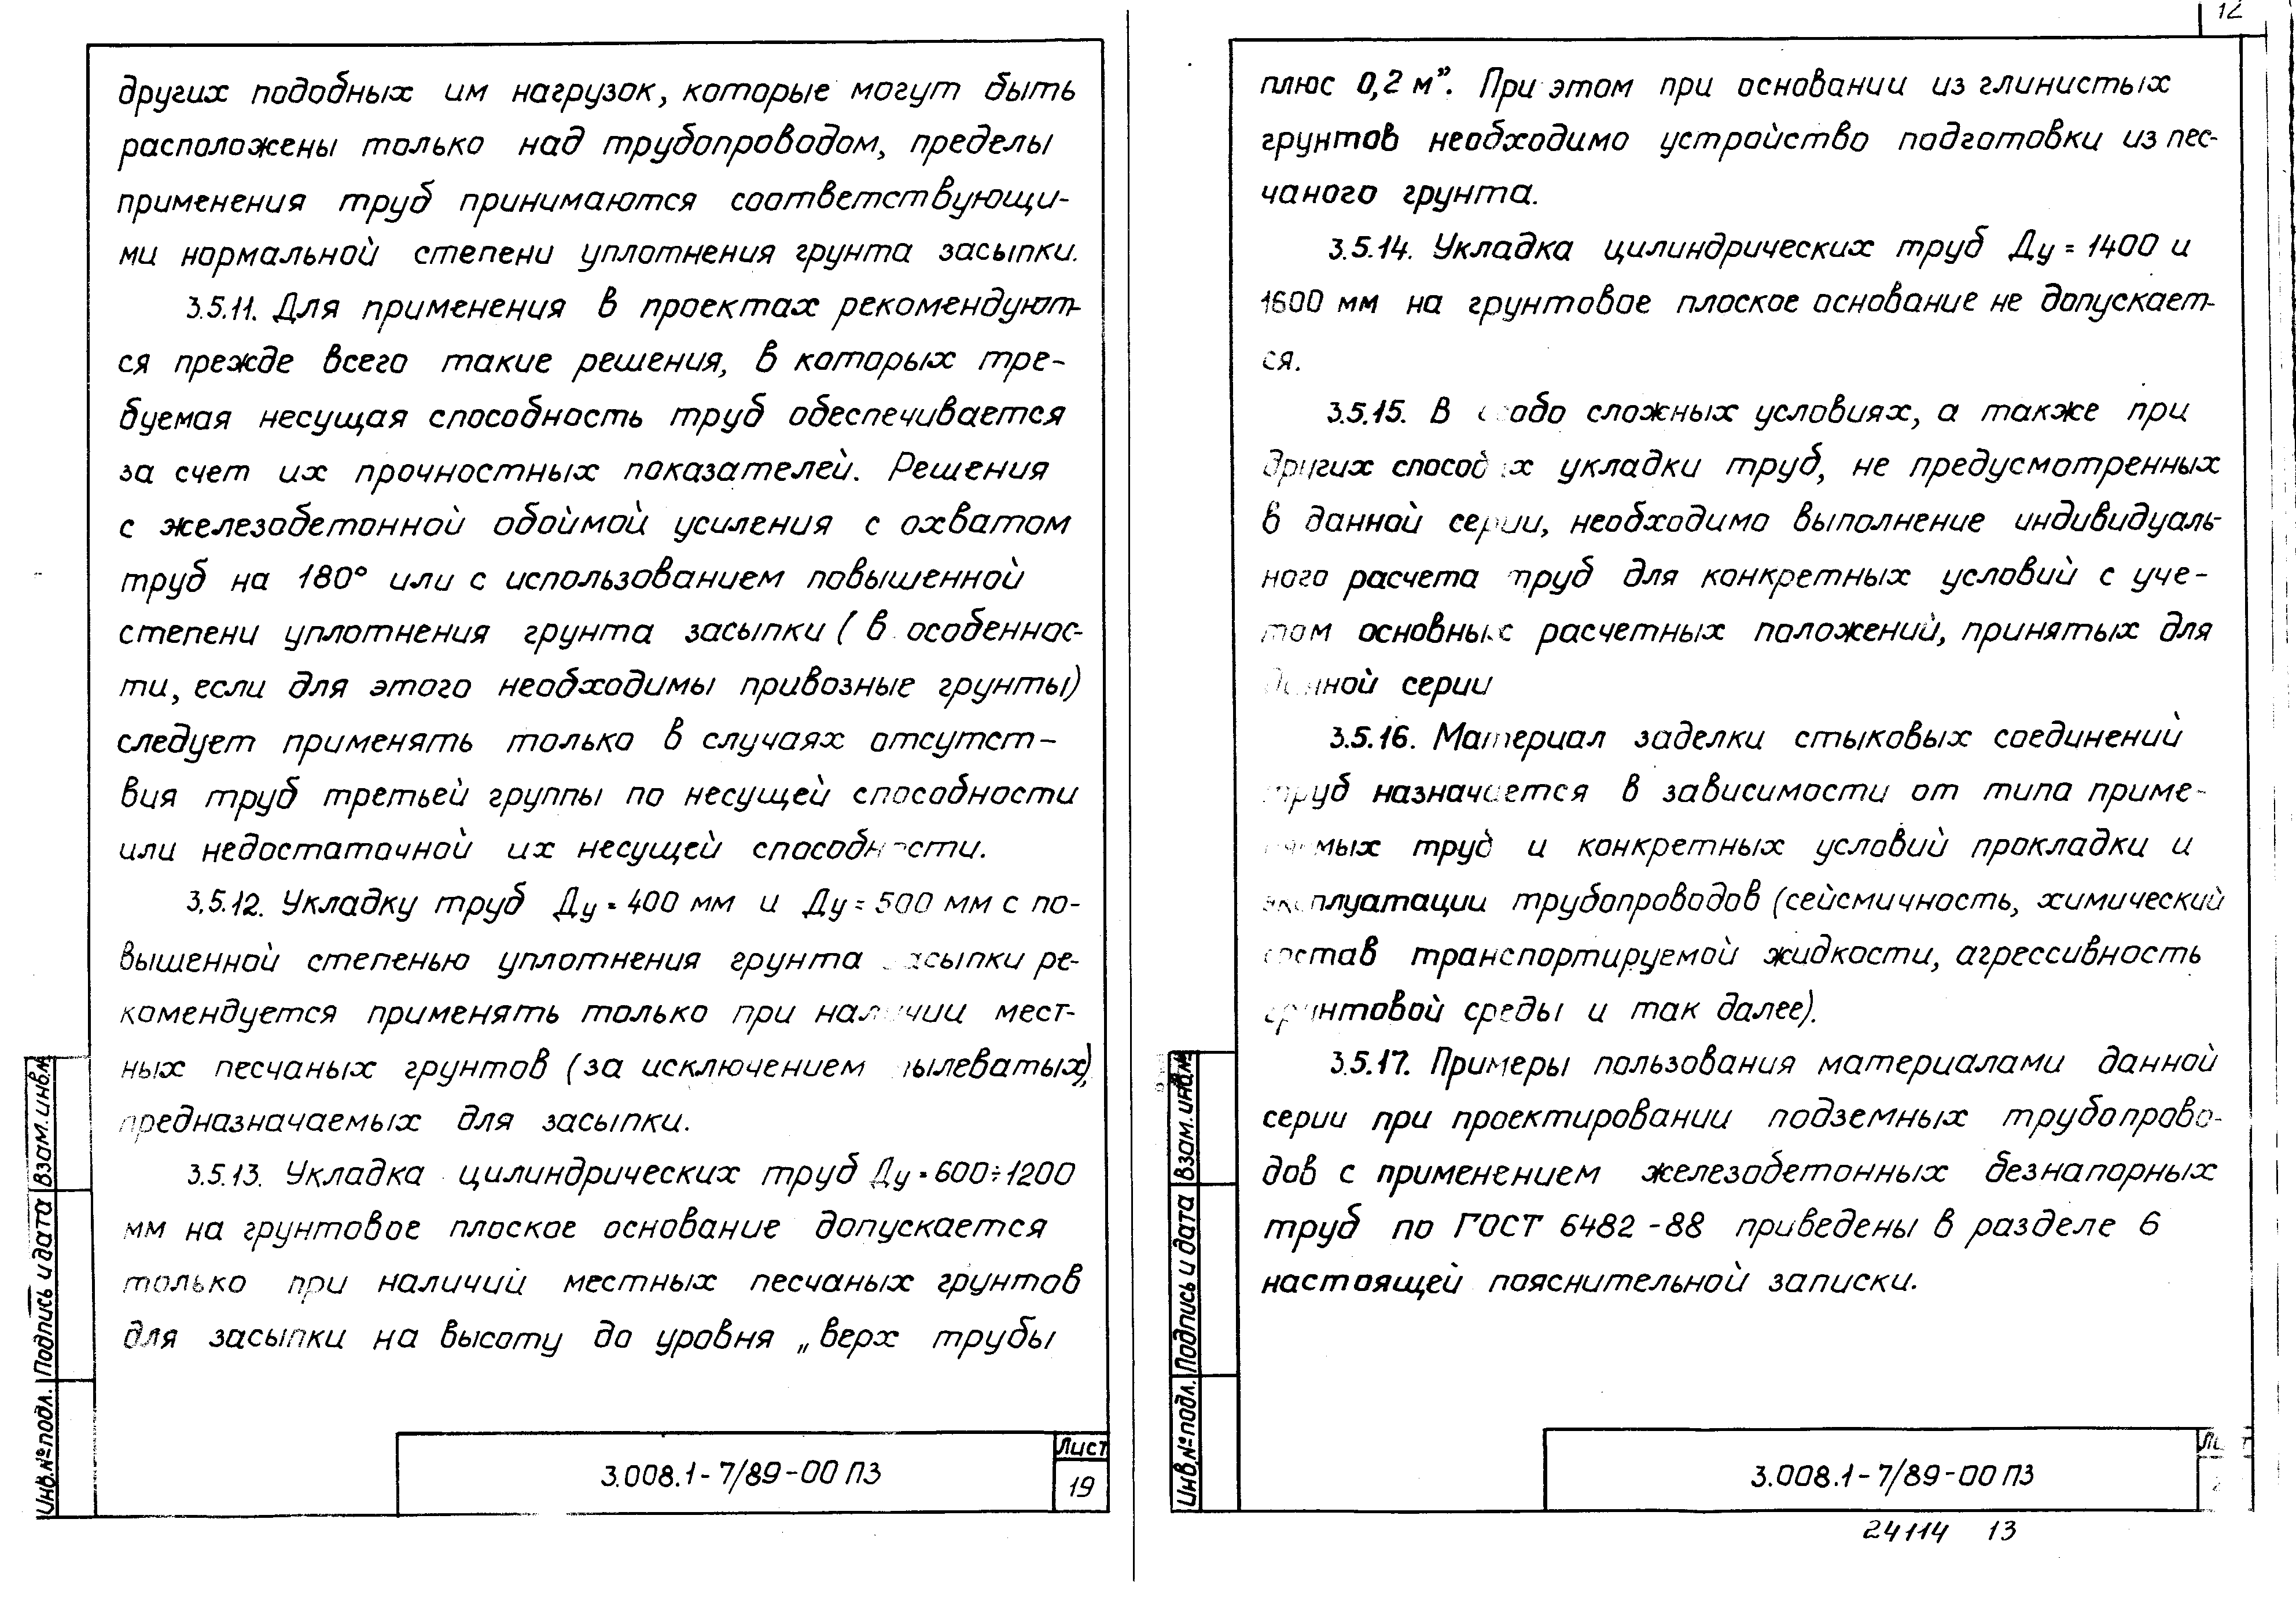 других подобных им нагрузок, которые могут быть
расположены только над трубопроводом, пределы
применения труб принимаются соответствующи-
ми нормальной степени уплотнения грунта засыпки.
3.5.11. Для применения в проектах рекомендуют-
ся прежде всего такие решения, в которых тре-
буемая несущая способность труб обеспечивается
за счет их прочностных показателей. Решения
с железобетонной обоймой усиления с охватом
труб на 180° или с использованием повышенной
степени уплотнения грунта засыпки (в особеннос-
ти, если для этого необходимы привозные грунты)
следует применять только в случаях отсутст-
вия труб третьей группы по несущей способности
или недостаточной их несущей способности.
3.5.12. Укладку труб Ду = 400 мм и Ду = 500 мм с по-
вышенной степенью уплотнения грунта засыпки ре-
комендуется применять только при наличии мест-
ных песчаных грунтов (за исключением пылеватых),
предназначаемых для засыпки.
3.5.13. Укладка цилиндрических труб Ду = 600÷1200
мм на грунтовое плоское основание допускается
только при наличий местных песчаных грунтов
для засыпки на высоту до уровня „верх трубы
Инв.№подл. Подпись и дата Взам.инв.№
3.008.1-7/89-00 ПЗ
Лист
19
12
плюс 0,2 м”. При этом при основании из глинистых
грунтов необходимо устройство подготовки из пес-
чаного грунта.
3.5.14. Укладка цилиндрических труб Ду = 1400 и
1600 мм на грунтовое плоское основание не допускает-
ся.
3.5.15. В особо сложных условиях, а также при
других способах укладки труб, не предусмотренных
в данной серии, необходимо выполнение индивидуаль-
ного расчета труб для конкретных условий с уче-
том основных расчетных положений, принятых для
данной серии
3.5.16. Материал заделки стыковых соединений
труб назначается в зависимости от типа приме-
няемых труб и конкретных условий прокладки и
эксплуатации трубопроводов (сейсмичность, химический
состав транспортируемой жидкости, агрессивность
грунтовой среды и так далее).
3.5.17. Примеры пользования материалами данной
серии при проектировании подземных трубопрово-
дов с применением железобетонных безнапорных
труб по ГОСТ 6482-88 приведены в разделе 6
настоящей пояснительной записки.
Инв.№подл. Подпись и дата Взам.инв.№
3.008.1-7/89-00 ПЗ
Лист
24114 13